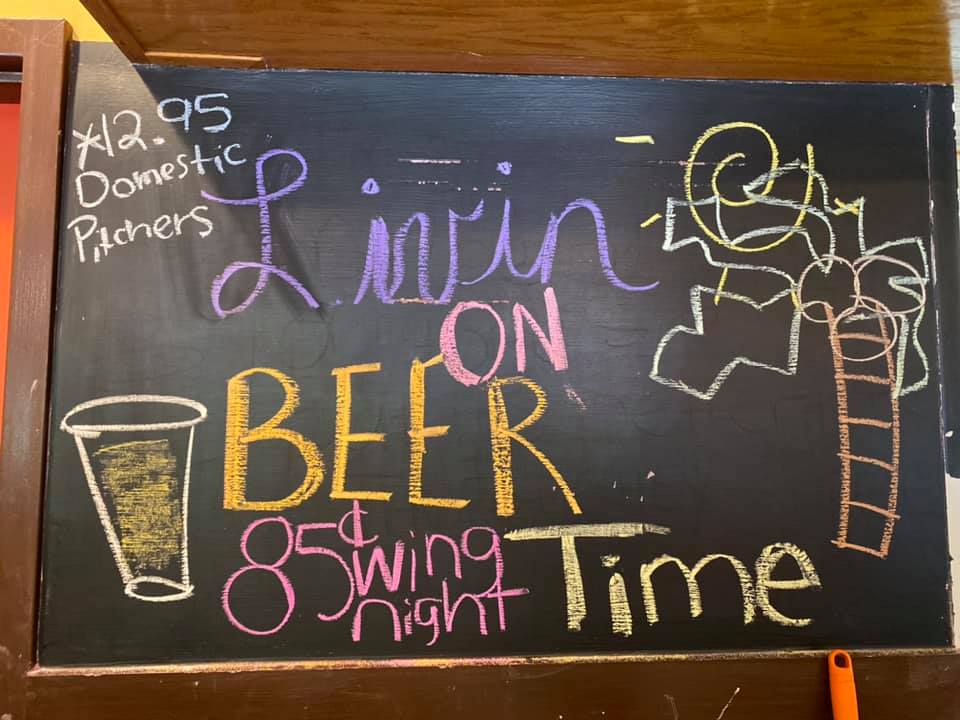 *12.95
Domestic
Pitchers
Livin
ON
BEER
85¢ wing
night
Time